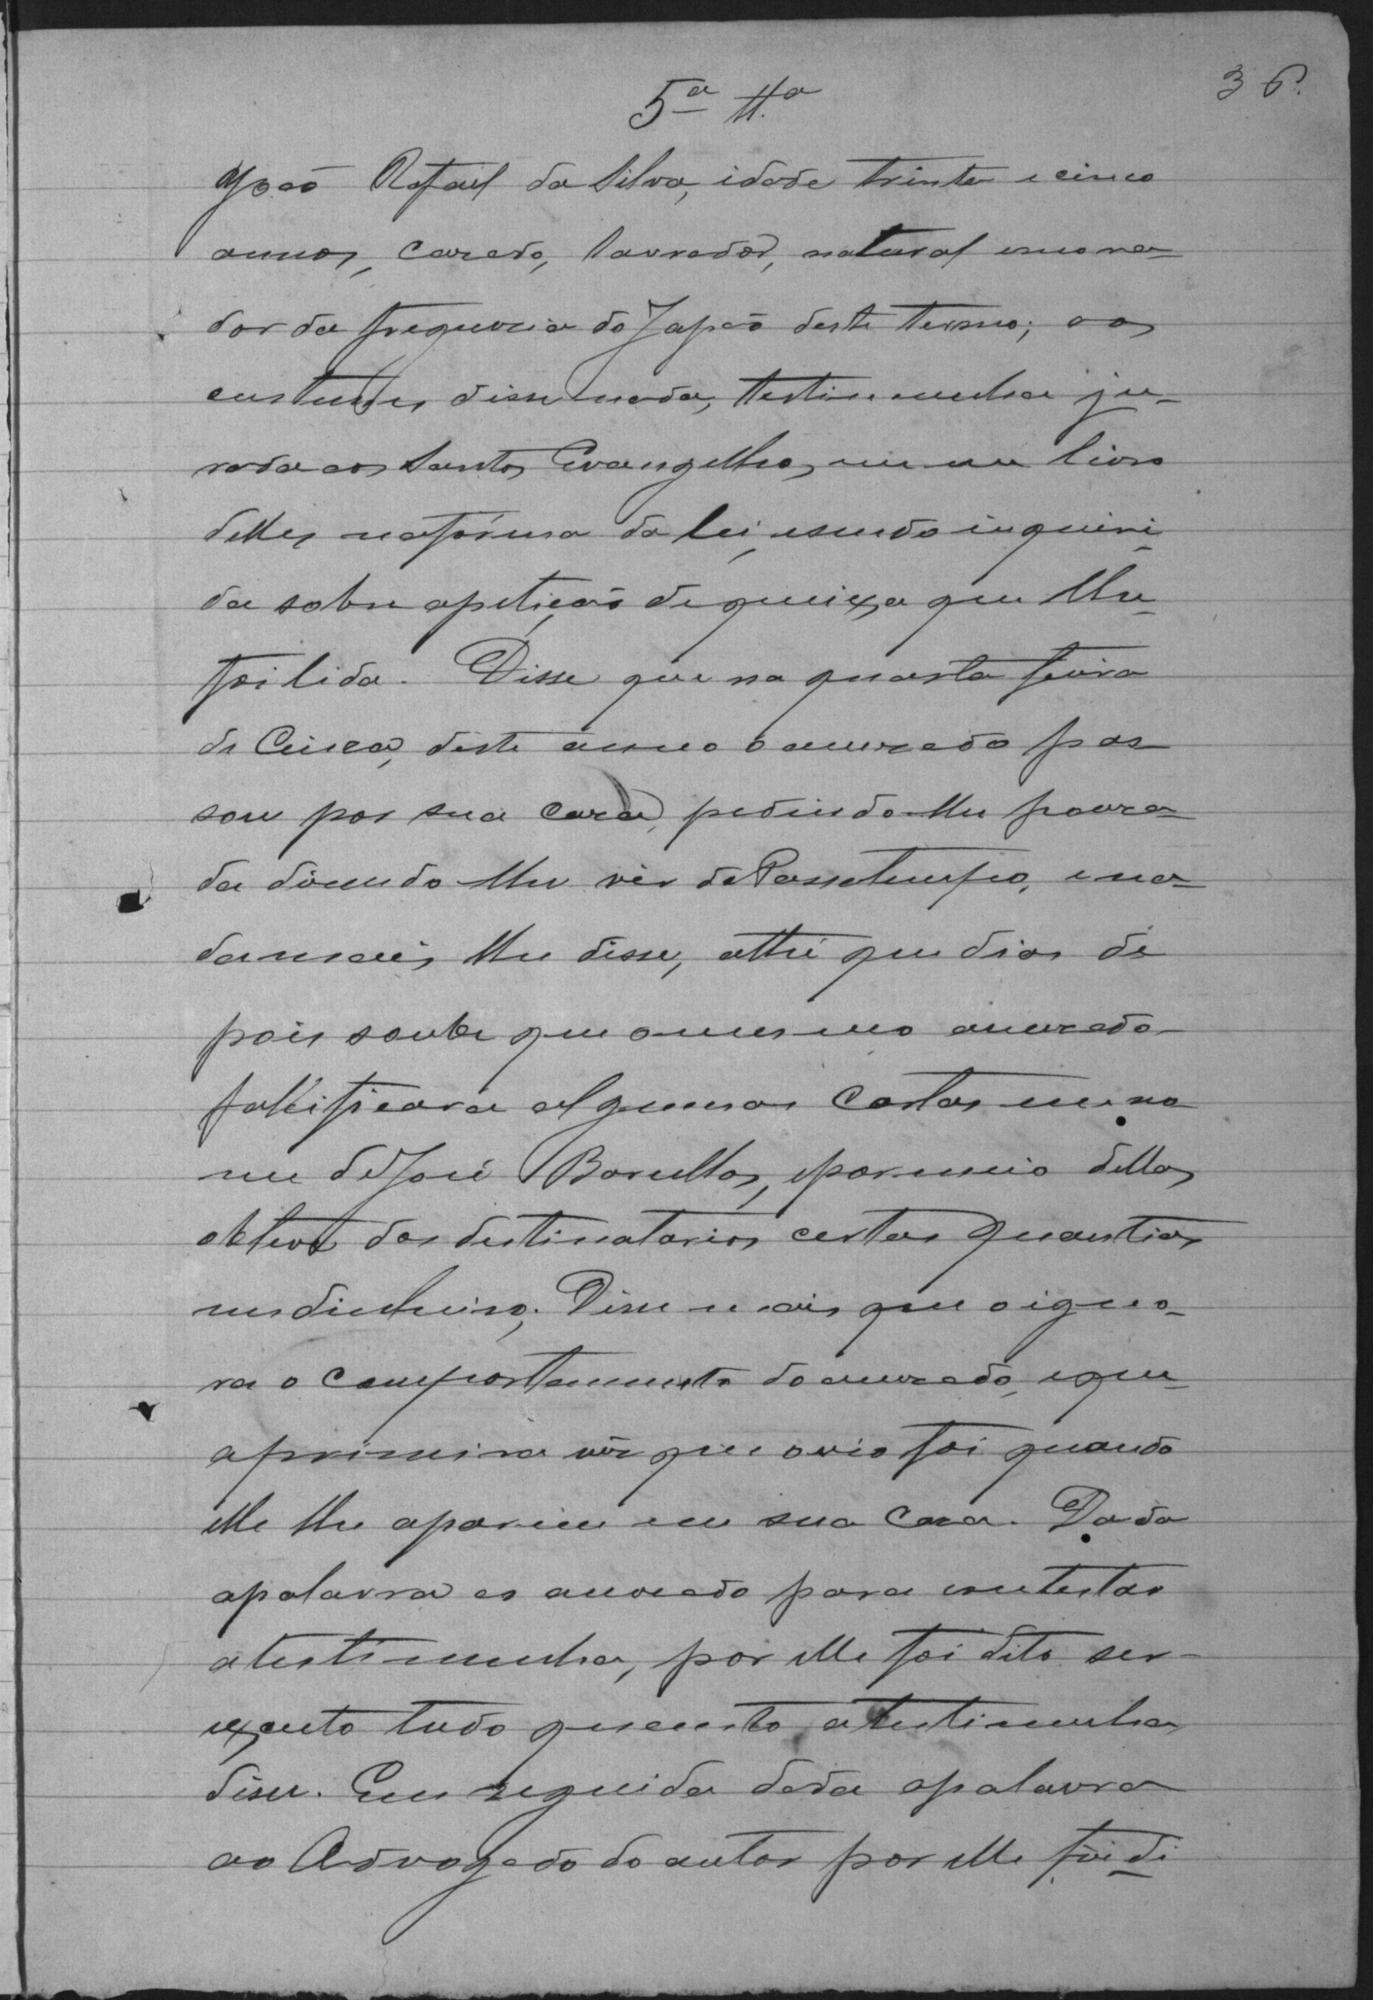 36.
5ª Ttª
João Rafael da Silva, idade trinta e cinco
annos, cazado, lavrador, natural e mora-
dor da freguezia do Japão deste termo; aos
custumes disse nada, testimunha ju-
rada aos Santos Evangelhos, em um livro
delles na fórma da lei, e sendo inquiri-
da sobre a petição de queixa que lhe
foi lida. Disse que na quarta feira
de Cinza, deste anno o accuzado pas
sou por sua caza, pedindo-lhe pouza-
da dizendo-lhe vir de Passatempo, e na-
da mais lhe disse, athé que dias de
pois soube que o mesmo accuzado
falcificara algumas cartas em no
me de José Barcellos, e por meio dellas
obteve dos destinatarios certas quantias
em dinheiro. Disse mais que o igno-
ra o comportamento do accuzado, e que
a primeira vêz que o vio foi quando
elle lhe apareceu em sua caza. Dada
a palavra ao accuzado para contestar
a testimunha, por elle foi dito ser-
exauto tudo quanto a testimunha
disse. Em seguida dada a palavra
ao Advogado do autor por elle foi di